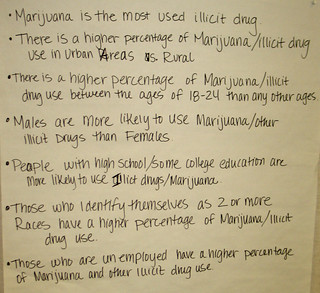 • Marijuana is the most used illicit drug.
• There is a higher percentage of Marijuana/illicit drug
use in Urban Areas vs. Rural
• There is a higher percentage of Marijuana/illicit
drug use between the ages of 18-24 than any other ages.
• Males are more likely to use Marijuana/other
illicit Drugs than Females.
• People with high school/some college education are
more likely to use Illict drugs/Marijuana.
• Those who Identify themselves as 2 or more
Races have a higher percentage of Marijuana/Illicit
drug use.
• Those who are unemployed have a higher percentage
of Marijuana and other illicit drug use.